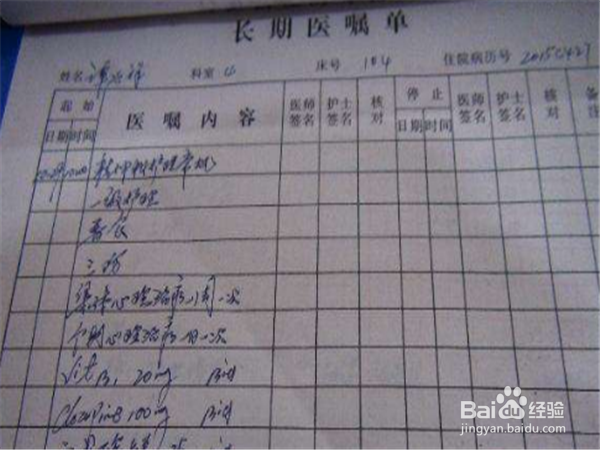 长期医嘱单
姓名 科室 床号 104 住院病历号 20150427
起始 医嘱内容 医师签名 护士签名 核对 停止 医师签名 护士签名 核对 备注
日期 时间 日期 时间
精神科护理常规
一级护理
普食
集体心理治疗 一次
个别心理治疗 一次
Vit B1 20mg Bid
Clozapine 100mg Bid
Baidu经验
jingyan.baidu.com